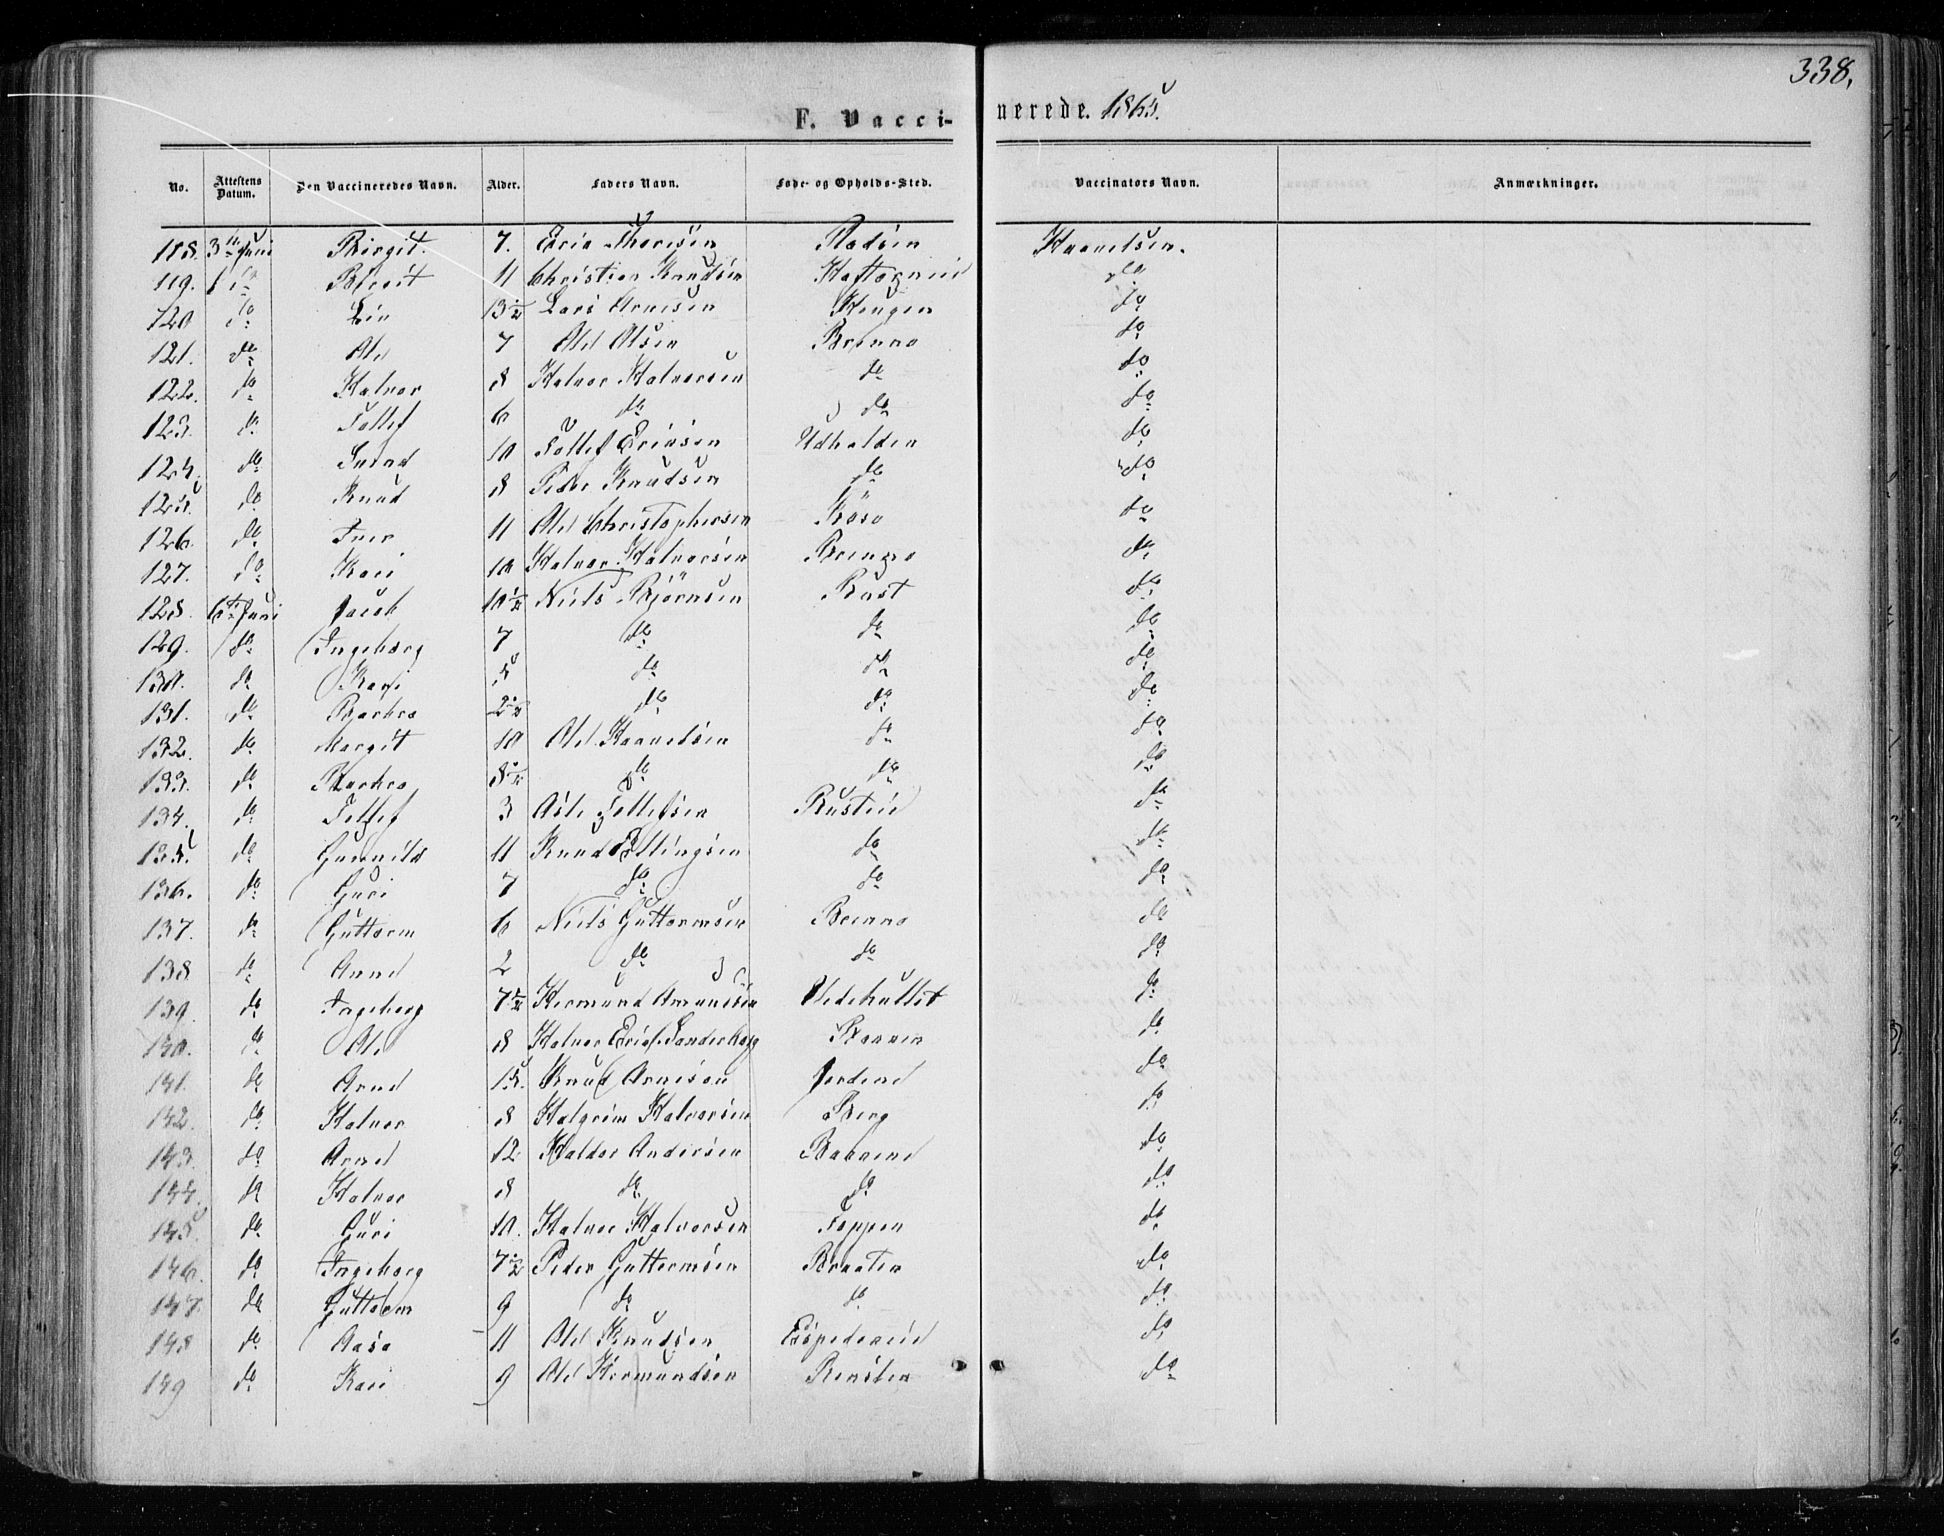 338.
F. Vaccinerede. 1865.
No. Attestens Datum. Den Vaccineredes Navn. Alder. Faders Navn. Føde- og Opholds-Sted. Vaccinators Navn. Anmærkninger.
118. 3die Juni Birgit. 7. Eric Thorsen Kaavelsen.
119. Birgit 11 Christian Knudsen do
120 do 13½ Lars Arnesen Haugen do
121. do Ole 7 Ole Olsen Brenno do
122. do Halvor 8 Halvor Halvorsen do do
123. do Tollef 6 do do do
124. do Svend 10 Tollef Ericsen Udhalden do
125. do Knud 8 Peder Knudsen do do
126. do Iver 11 Ole Christophersen do
127. do Kari 10 Halvor Halvorsen Brenno do
128. 6te Juni Jacob 10½ Niels Bjørnsen Rust do
129. do Ingeborg 7 do do do
130. do Kari 5 do do do
131. do Barbro 2½ do do do
132. do Margit 10 Ole Kaavelsen do do
133. do Barbro 8½ do do do
134. do Tollef 3 Asle Tollefsen Rusteie do
135. do Gunnild 11 Knud Ellingsen do do
136. do Guri 7 do do do
137. do Guttorm 6 Niels Guttormsen Brenno do
138 do Anne 2 do do do
139. do Ingeborg 7½ Hermund Amundsen do
140. do Ole 8 Halvor Erics. Sanderborg do
141. do Arne 15. Knud Arnesen Jordene do
142. do Halvor 8 Halgrim Halvorsen Berg do
143. do Arne 12 Haldor Andersen do
144. do Halvor 8 do do do
145. do Guri 10. Halvor Halvorsen Toppen do
146. do Ingeborg 7½ Peder Guttormsen Braaten do
147. do Guttorm 9 do do do
148 do Aase 11 Ole Knudsen Espedeeie do
149 do Kari 9 Ole Hermundsen do